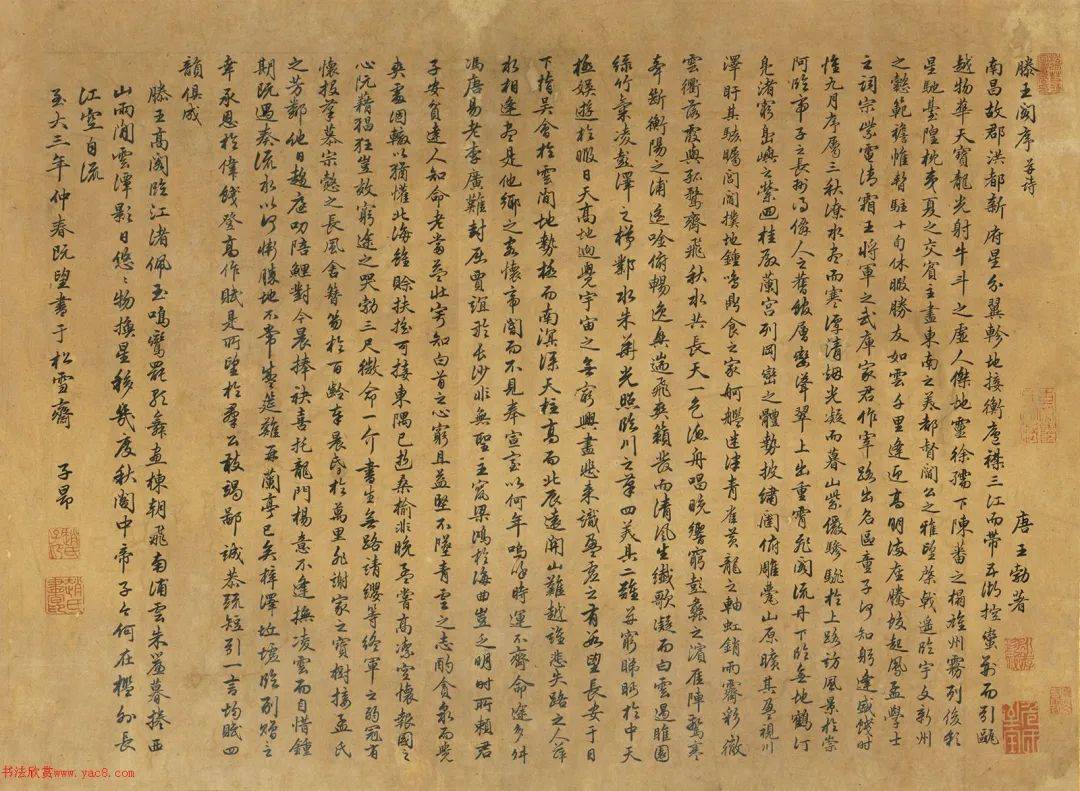 滕王閣序 并詩 唐 王勃 著
南昌故郡洪都新府星分翼軫地接衡廬襟三江而帶五湖控蠻荊而引甌
越物華天寶龍光射牛斗之虛人傑地靈徐孺下陳蕃之榻雄州霧列俊彩
星馳臺隍枕夷夏之交賓主盡東南之美都督閻公之雅望棨戟遥臨宇文新州
之懿範襜帷暫駐十旬休暇勝友如雲千里逢迎高朋滿座騰蛟起鳳孟學士
之詞宗紫電清霜王將軍之武庫家君作宰路出名區童子何知躬逢盛餞時
惟九月序屬三秋潦水盡而寒潭清烟光凝而暮山紫儼驂騑於上路訪風景於崇
阿臨帝子之長洲得僊人之舊館層巒聳翠上出重霄飛閣流丹下臨無地鶴汀
鳧渚窮島嶼之縈迴桂殿蘭宫列岡巒之體勢披繡闥俯雕甍山原曠其盈視川
澤盱其駭矚閭閻撲地鐘鳴鼎食之家舸艦迷津青雀黃龍之軸虹銷雨霽彩徹
雲衢落霞與孤鶩齊飛秋水共長天一色漁舟唱晚響窮彭蠡之濱雁陣驚寒
聲斷衡陽之浦遥吟俯暢逸興遄飛爽籟發而清風生纖歌凝而白雲遏睢園
綠竹氣凌彭澤之樽鄴水朱華光照臨川之筆四美具二難并窮睇眄於中天
極娛遊於暇日天高地迥覺宇宙之無窮興盡悲來識盈虛之有數望長安于日
下指吳會於雲間地勢極而南溟深天柱高而北辰遠關山難越誰悲失路之人萍
水相逢盡是他鄉之客懷帝閽而不見奉宣室以何年嗚呼時運不齊命途多舛
馮唐易老李廣難封屈賈誼於長沙非無聖主竄梁鴻於海曲豈乏明時所賴君
子安貧達人知命老當益壯寧知白首之心窮且益堅不墜青雲之志酌貪泉而覺
爽處涸轍以猶懽北海雖賒扶搖可接東隅已逝桑榆非晚孟嘗高潔空懷報國之
心阮籍猖狂豈效窮途之哭勃三尺微命一介書生無路請纓等終軍之弱冠有
懷投筆慕宗慤之長風舍簪笏於百齡奉晨昏於萬里非謝家之寶樹接孟氏
之芳鄰他日趨庭叨陪鯉對今晨捧袂喜托龍門楊意不逢撫凌雲而自惜鍾
期既遇奏流水以何慚勝地不常盛筵難再蘭亭已矣梓澤坵墟臨別贈言
幸承恩於偉餞登高作賦是所望於羣公敢竭鄙誠恭疏短引一言均賦四
韻俱成
滕王高閣臨江渚佩玉鳴鸞罷歌舞畫棟朝飛南浦雲朱簾暮捲西
山雨閒雲潭影日悠〻物換星移幾度秋閣中帝子今何在檻外長
江空自流
至大三年仲春既望書于松雪齋 子昂
书法欣赏www.yac8.com